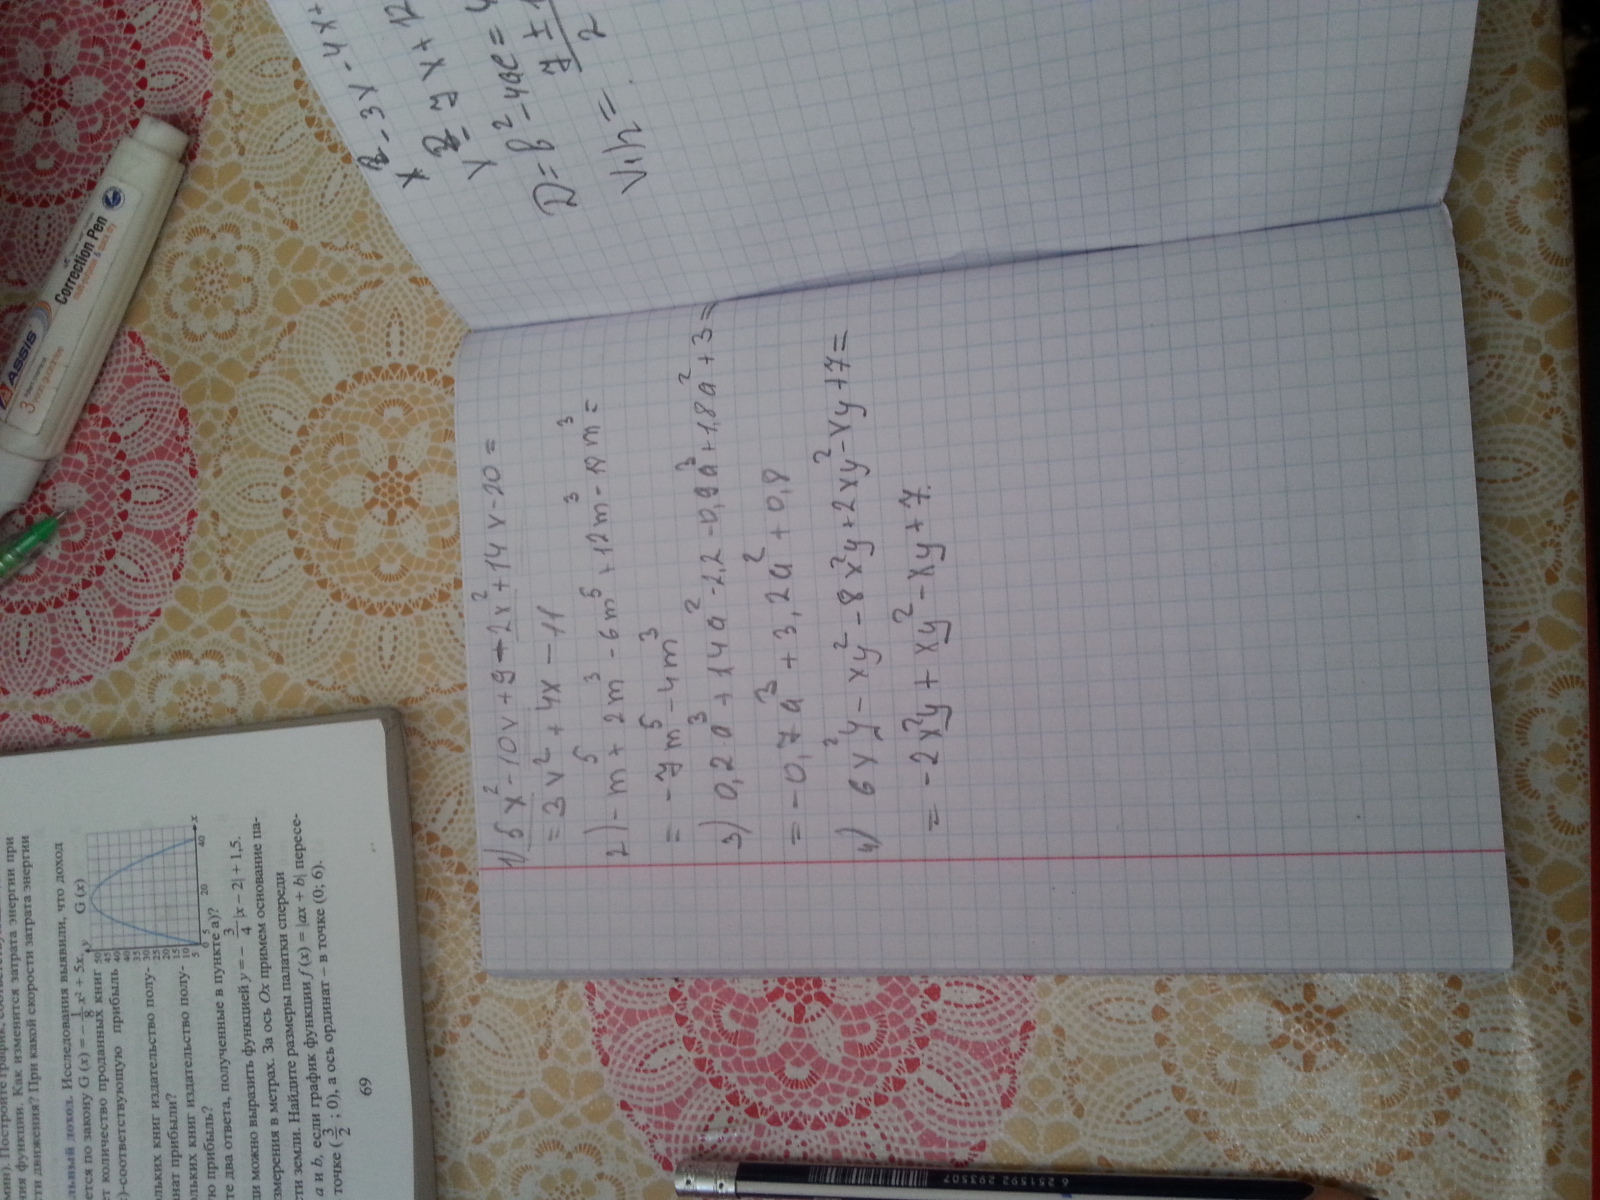 1) 5x² - 10x + 9 - 2x² + 14x - 20 =
= 3x² + 4x - 11
2) - m⁵ + 2m³ - 6m⁵ + 12m³ - 18m³ =
= -7m⁵ - 4m³
3) 0,2a³ + 1,4a² - 2,2 - 0,9a³ + 1,8a² + 3 =
= -0,7a³ + 3,2a² + 0,8
4) 6x²y - xy² - 8x²y + 2xy² - xy + 7 =
= -2x²y + xy² - xy + 7.
x² - 3x - 4x +
x² - 7x + 12
D = b² - 4ac =
x₁,₂ = 7 ± / 2
Assis
Correction Pen
ния функции. Как изменится затрата энергии при
сти движения? При какой скорости затрата энергии
льный доход. Исследования выявили, что доход
ется по закону G (x) = - 1/8 x² + 5x,
ет количество проданных книг
)-соответствующую прибыль
y
G (x)
50
45
40
35
30
25
20
15
10
5
0 5 20 40 x
льких книг издательство полу-
нат прибыли?
льких книг издательство полу-
ю прибыль?
те два ответа, полученные в пункте а)?
ли можно выразить функцией y = - 3/4 |x - 2| + 1,5.
змерения в метрах. За ось Ox примем основание па-
сти земли. Найдите размеры палатки спереди
a и b, если график функции f (x) = |ax + b| пересе-
точке (3/2; 0), а ось ординат – в точке (0; 6).
69
6 251592 293507